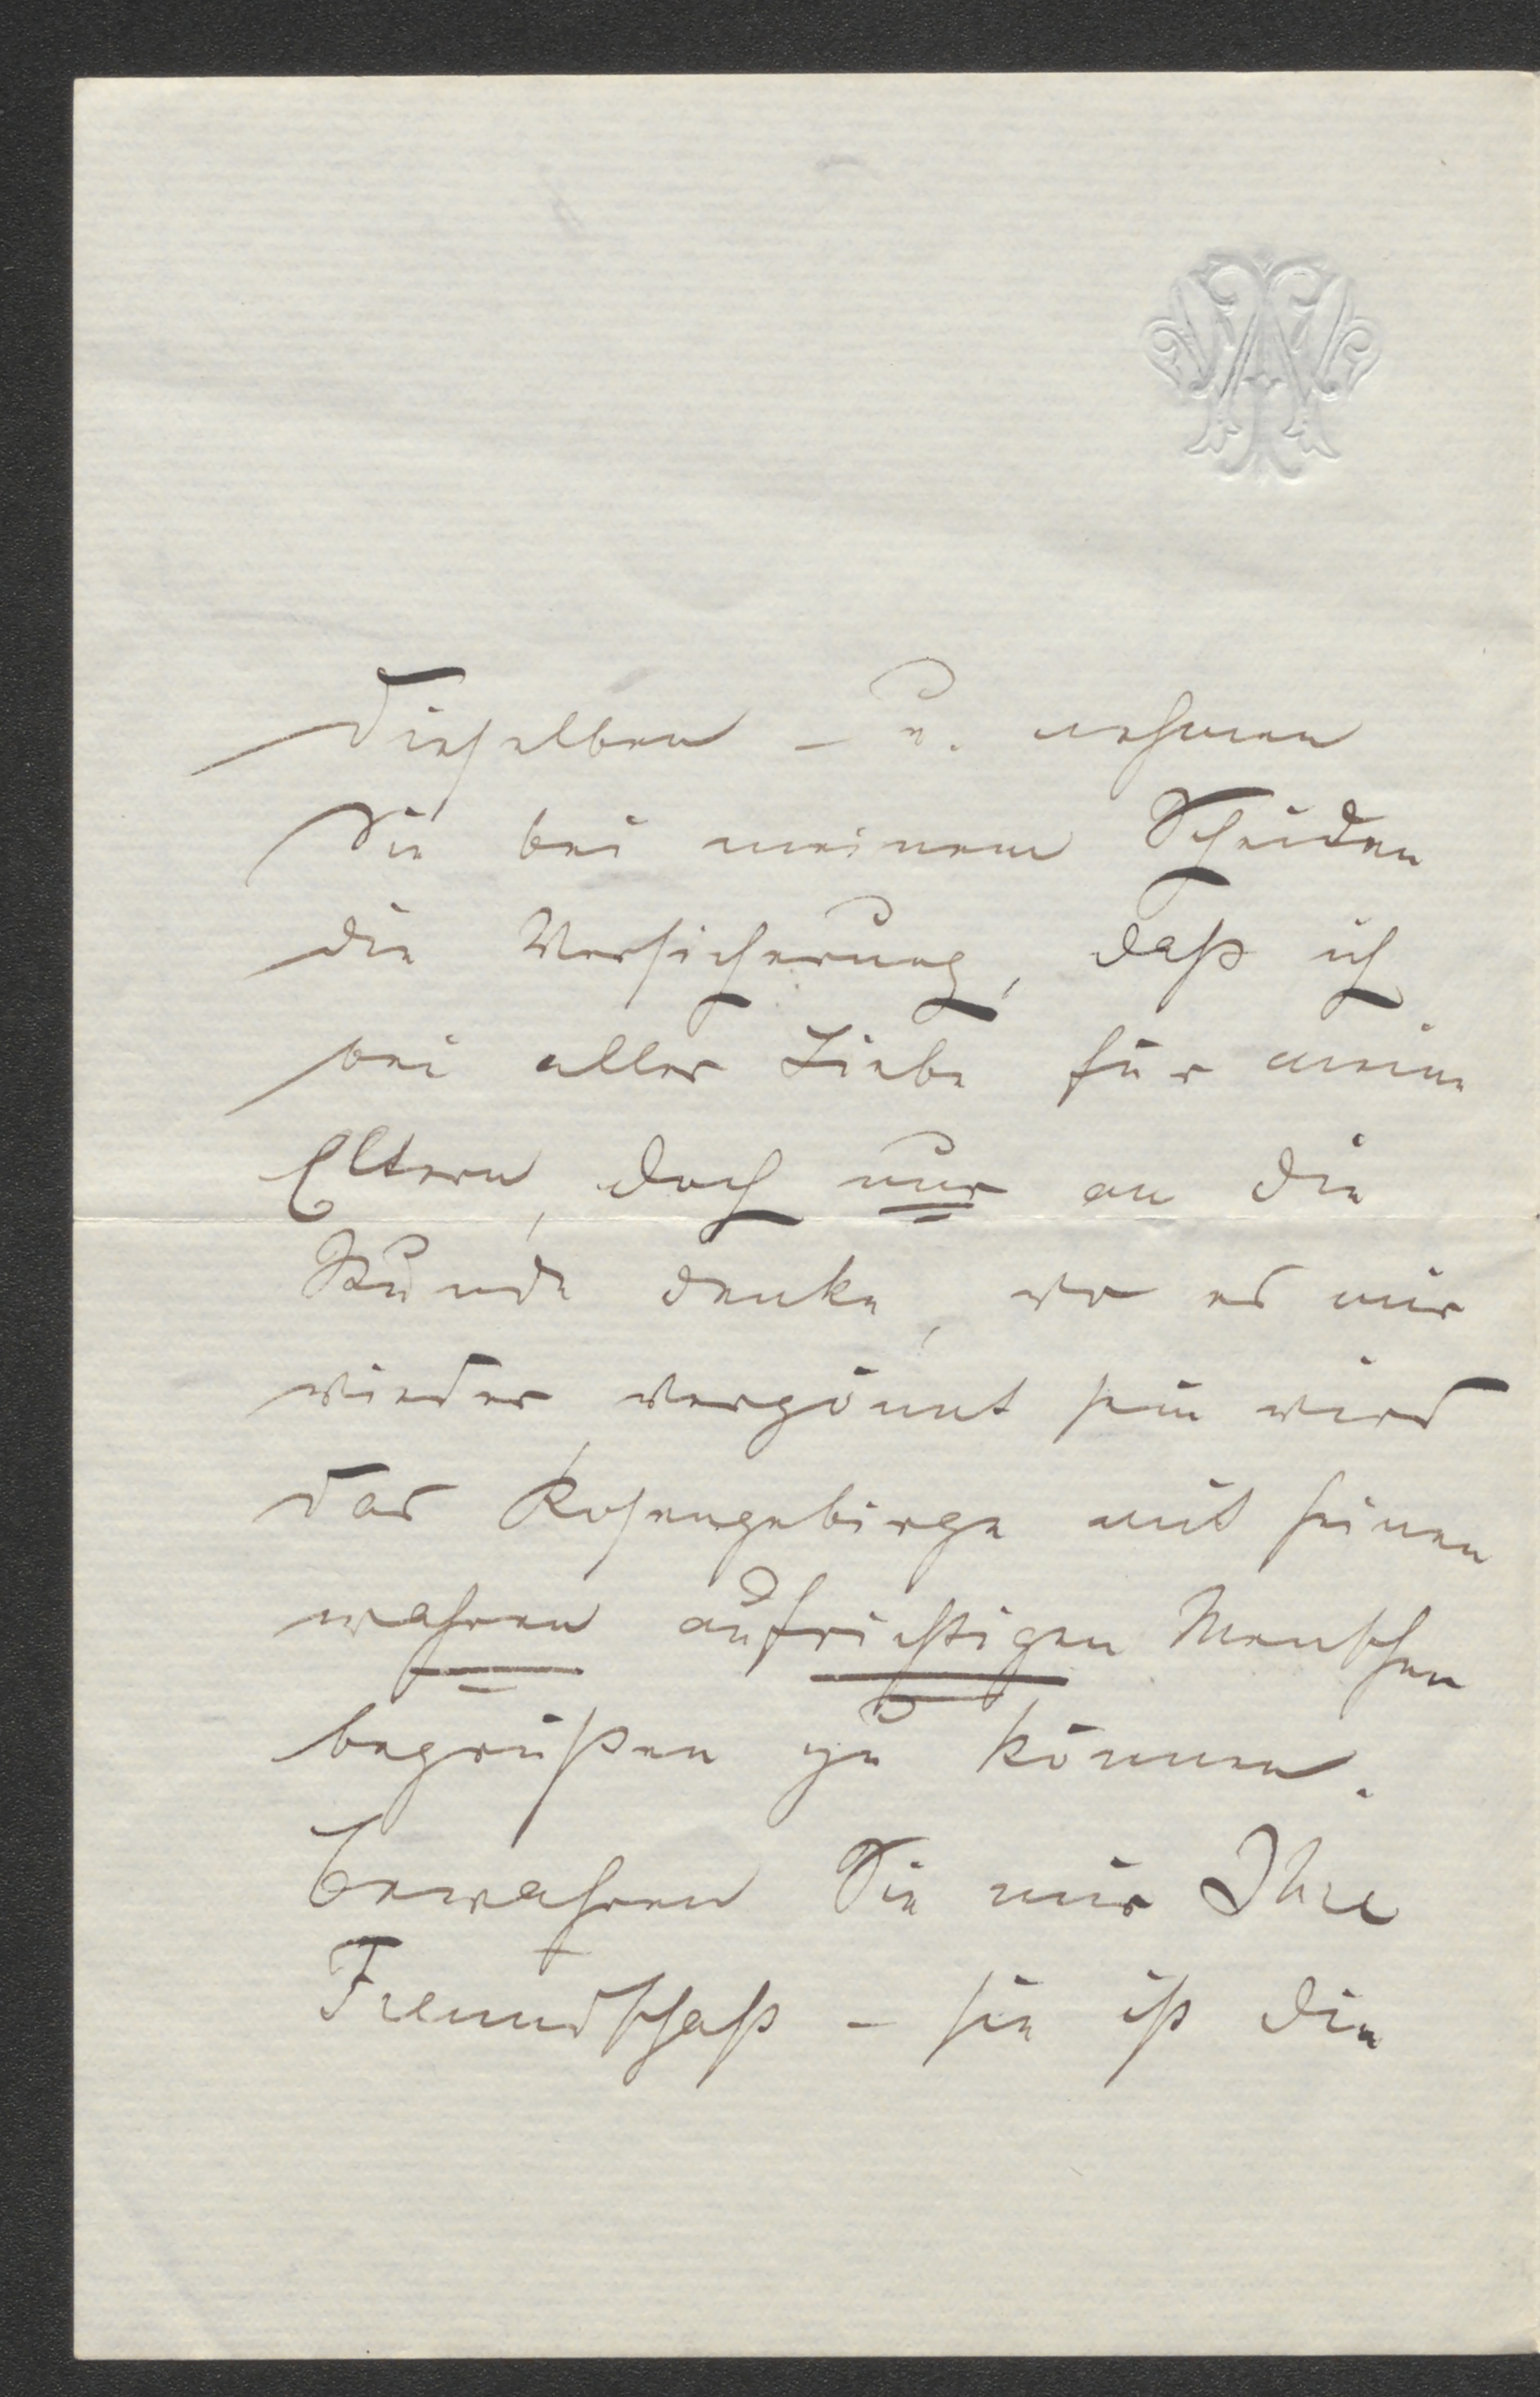 dieselben – u. nehmen
Sie bei meinem Scheiden
die Versicherung, daß ich
bei aller Liebe für meine
Eltern, doch nur an die
Stunde denke, wo es mir
wieder vergönnt sein wird
das Rosengebirge mit seinen
wahren aufrichtigen Menschen
begrüßen zu können.
Bewahren Sie mir Ihre
Freundschaft – sie ist die